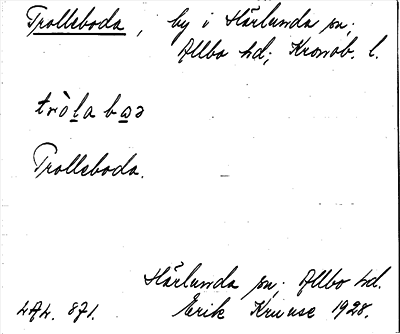 Trollsboda, by i Härlunda sn;
Allbo hd; Kronob. l.
tròla baə
Trollsboda.
Härlunda sn; Allbo hd.
4A4. 871. Erik Kruuse 1928.